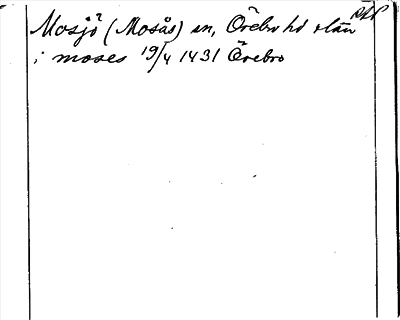 Mosjö (Mosås) sn, Örebro hd o län
i moses 19/4 1431 Örebro